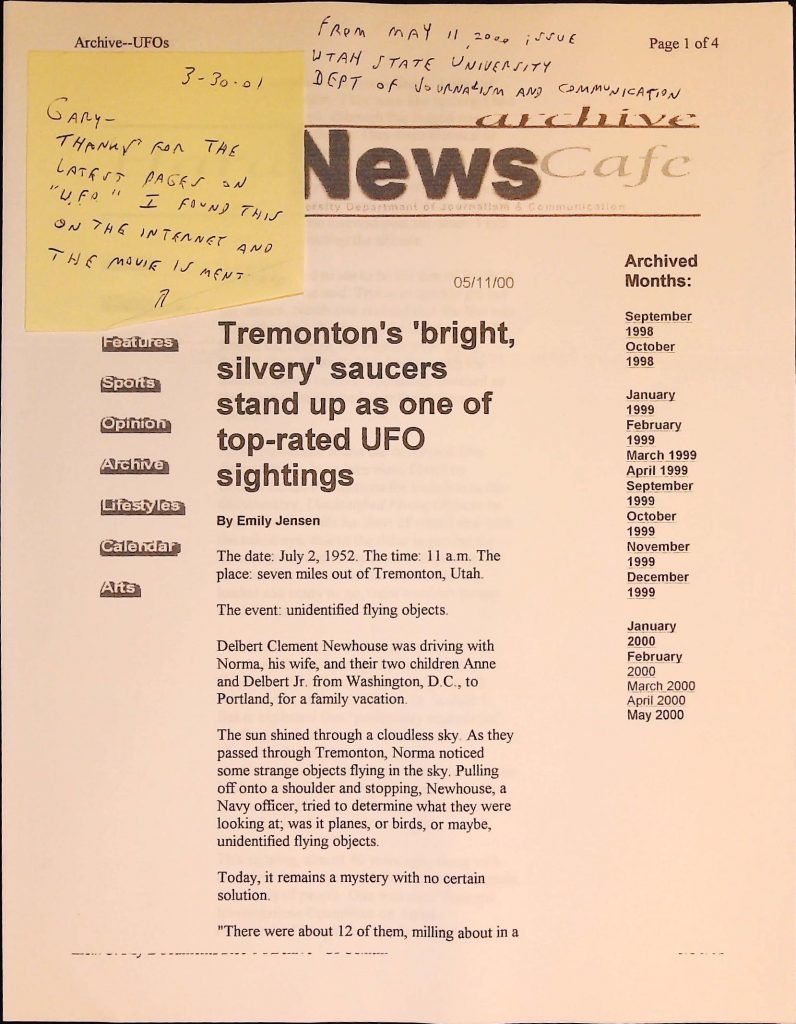 Archive--UFOs
Page 1 of 4
FROM MAY 11, 2000 ISSUE
UTAH STATE UNIVERSITY
DEPT OF JOURNALISM AND COMMUNICATION
3-30-01
GARY-
THANKS FOR THE
LATEST PAGES ON
"UFO" I FOUND THIS
ON THE INTERNET AND
THE MOVIE IS MENT.
archive
News Cafe
ersity Department of Journalism & Communication
05/11/00
Tremonton's 'bright,
silvery' saucers
stand up as one of
top-rated UFO
sightings
By Emily Jensen
The date: July 2, 1952. The time: 11 a.m. The
place: seven miles out of Tremonton, Utah.
The event: unidentified flying objects.
Delbert Clement Newhouse was driving with
Norma, his wife, and their two children Anne
and Delbert Jr. from Washington, D.C., to
Portland, for a family vacation.
The sun shined through a cloudless sky. As they
passed through Tremonton, Norma noticed
some strange objects flying in the sky. Pulling
off onto a shoulder and stopping, Newhouse, a
Navy officer, tried to determine what they were
looking at; was it planes, or birds, or maybe,
unidentified flying objects.
Today, it remains a mystery with no certain
solution.
"There were about 12 of them, milling about in a
Features
Sports
Opinion
Archive
Lifestyles
Calendar
Arts
Archived
Months:
September
1998
October
1998
January
1999
February
1999
March 1999
April 1999
September
1999
October
1999
November
1999
December
1999
January
2000
February
2000
March 2000
April 2000
May 2000